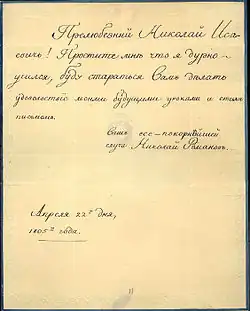 Прелюбезный Николай Иса-
евичь! Простите мнѣ что я дурно
учился, буду стараться Вамъ дѣлать
удовольствiе моими будущими уроками и симъ
письмомъ.
Вашъ все-покорнѣйшiй
слуга Николай Романовъ.
Апреля 22го дня,
1805го года.